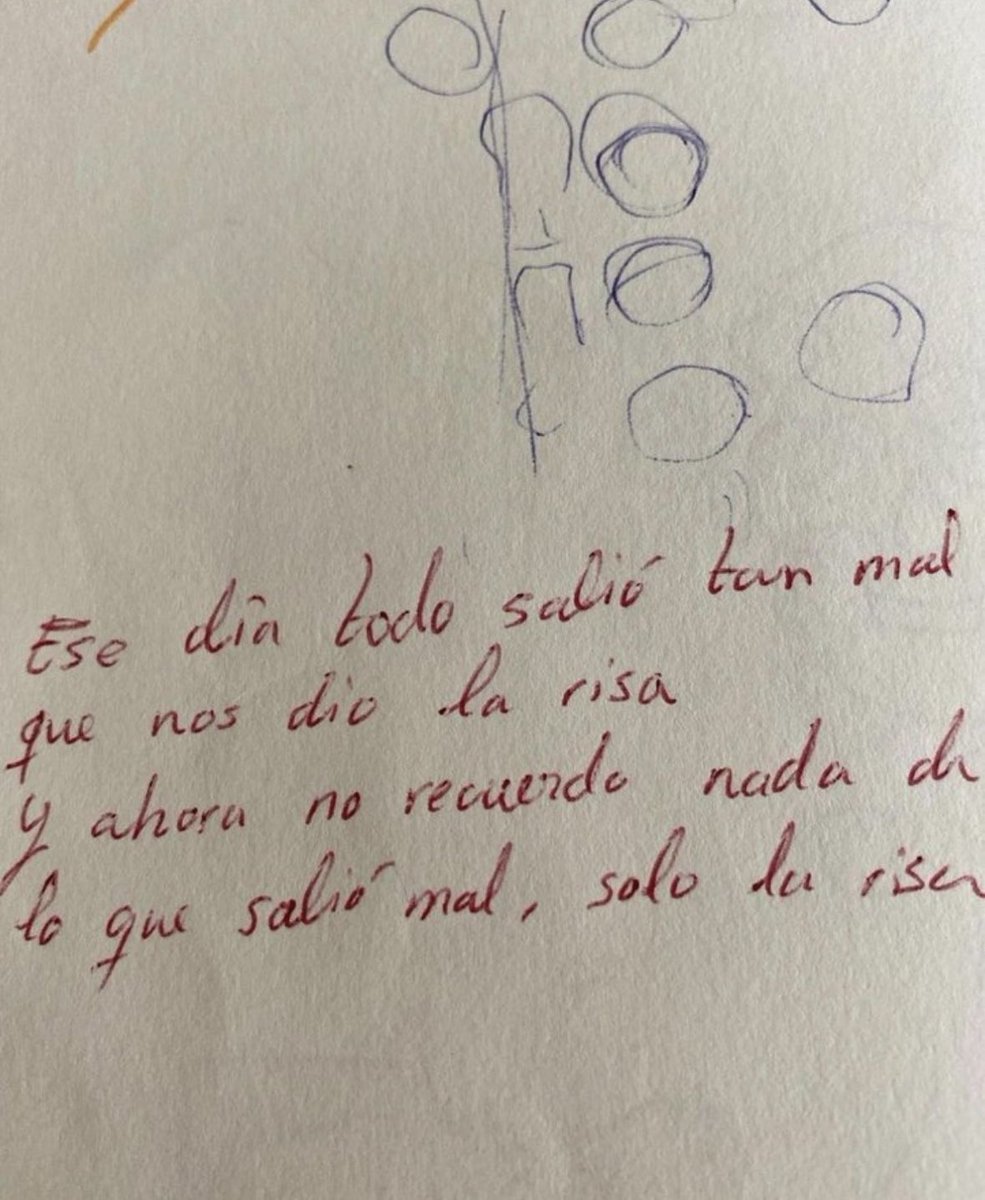 Ese día todo salió tan mal
que nos dio la risa
Y ahora no recuerdo nada de
lo que salió mal, solo la risa